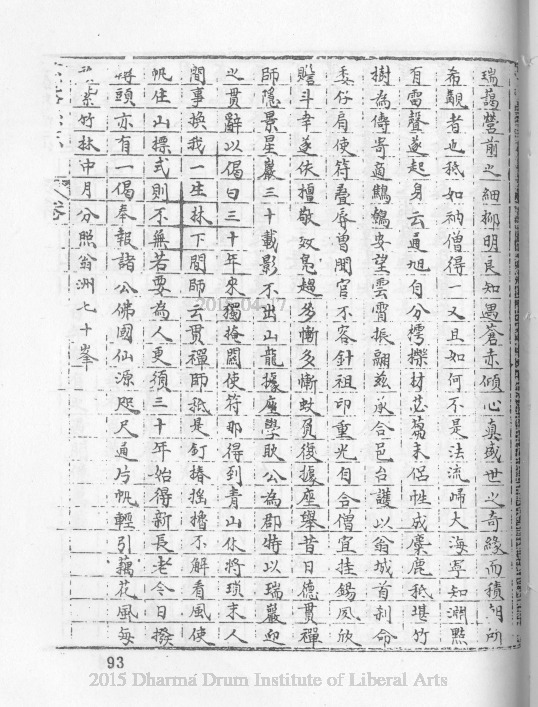 瑞藹營前之細柳明良知遇蒼赤傾心真盛世之奇緣而積朝所
希覯者也秪如衲僧得一又且如何不是法流歸大海寧知淵默
有雷聲遂起身云通旭自分樗櫟材苾蒭末侶性成麋鹿秪堪竹
樹為儔寄適鷦鷯安望雲霄振翮茲承合邑台護以翁城首剎命
委仔肩使符疊辱曾聞官不容針祖印重光自合僧宜挂錫夙欣
瞻斗幸遂依檀敬效鳧趨多慚多慚蚊負復據座舉昔日德貫禪
師隱景星巖三十載影不出山龍據座學耿公為郡特以瑞巖迎
之貫辭以偈曰三十年來獨掩關使符那得到青山休將瑣末人
間事換我一生林下間師云貫禪師秪是釘樁搖櫓不解看風使
帆住山標式則不無若要為人更須三十年始得新長老今日撥
轉頭亦有一偈奉報諸公佛國仙源咫尺通片帆輕引藕花風每
紫竹林中月分照翁洲七十峯
93
2015 Dharma Drum Institute of Liberal Arts